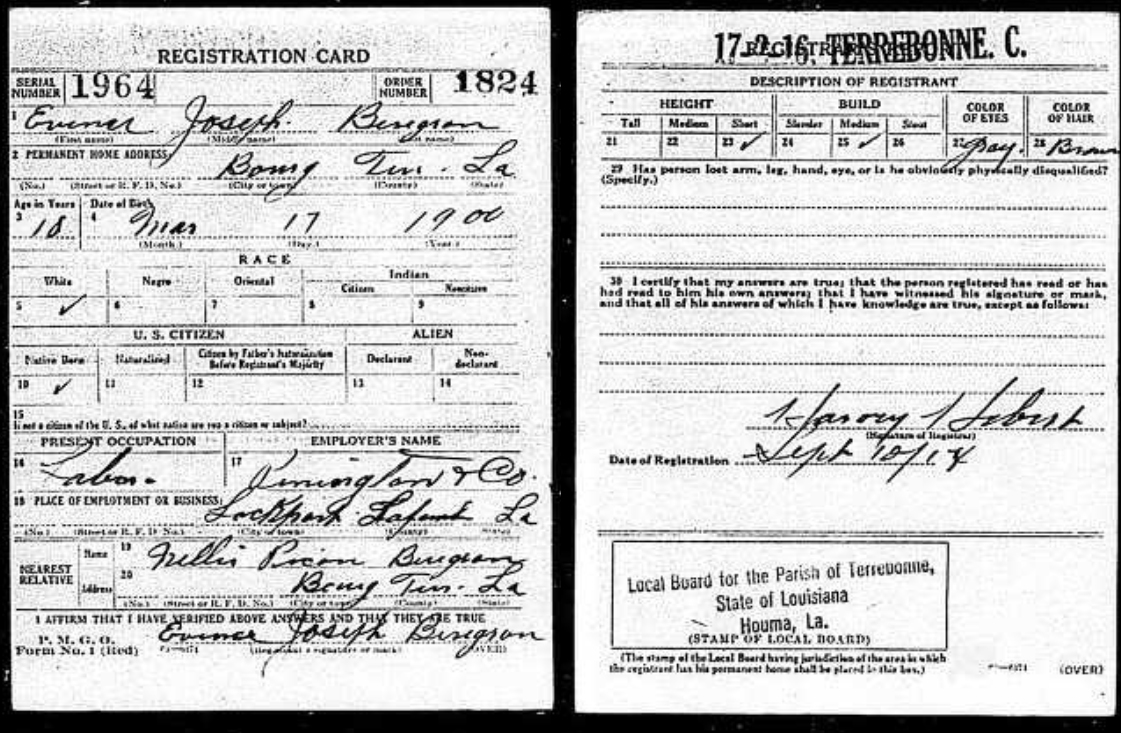 REGISTRATION CARD
SERIAL NUMBER 1964 ORDER NUMBER 1824
1 Joseph
(First name) (Middle name) (Last name)
2 PERMANENT HOME ADDRESS:
Bourg Terr. La
(No.) (Street or R. F. D. No.) (City or town) (County) (State)
Age in Years Date of Birth
3 18 4 Mar 17 1900
(Month.) (Day.) (Year.)
RACE
White Negro Oriental Indian
Citizen Noncitizen
5 ✓ 6 7 8 9
U. S. CITIZEN ALIEN
Native Born Naturalized Citizen by Father's Naturalization Before Registrant's Majority Declarant Non-declarant
10 ✓ 11 12 13 14
15
If not a citizen of the U. S., of what nation are you a citizen or subject?
PRESENT OCCUPATION EMPLOYER'S NAME
16 Labor 17 & Co.
18 PLACE OF EMPLOYMENT OR BUSINESS:
Lockport Lafourche La
(No.) (Street or R. F. D. No.) (City or town) (County) (State)
NEAREST RELATIVE Name 19
Address 20 Bourg Terr. La
(No.) (Street or R. F. D. No.) (City or town) (County) (State)
I AFFIRM THAT I HAVE VERIFIED ABOVE ANSWERS AND THAT THEY ARE TRUE
P. M. G. O.
Form No. 1 (Red) Joseph
(Registrant's signature or mark) (OVER)
17-2-16, TERREBONNE. C.
DESCRIPTION OF REGISTRANT
HEIGHT BUILD COLOR OF EYES COLOR OF HAIR
Tall Medium Short Slender Medium Stout
21 22 23 ✓ 24 25 ✓ 26 27 Gray 28 Brown
29 Has person lost arm, leg, hand, eye, or is he obviously physically disqualified?
(Specify.)
30 I certify that my answers are true; that the person registered has read or has
had read to him his own answers; that I have witnessed his signature or mark,
and that all of his answers of which I have knowledge are true, except as follows:
Harvey Hebert
(Signature of Registrar)
Date of Registration Sept 10/18
Local Board for the Parish of Terrebonne,
State of Louisiana
Houma, La.
(STAMP OF LOCAL BOARD)
(The stamp of the Local Board having jurisdiction of the area in which
the registrant has his permanent home shall be placed in this box.)
(OVER)